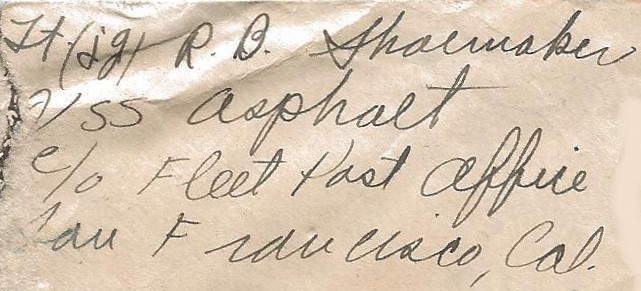 Lt. (jg) R. B. Shoemaker
USS Asphalt
c/o Fleet Post Office
San Francisco, Cal.